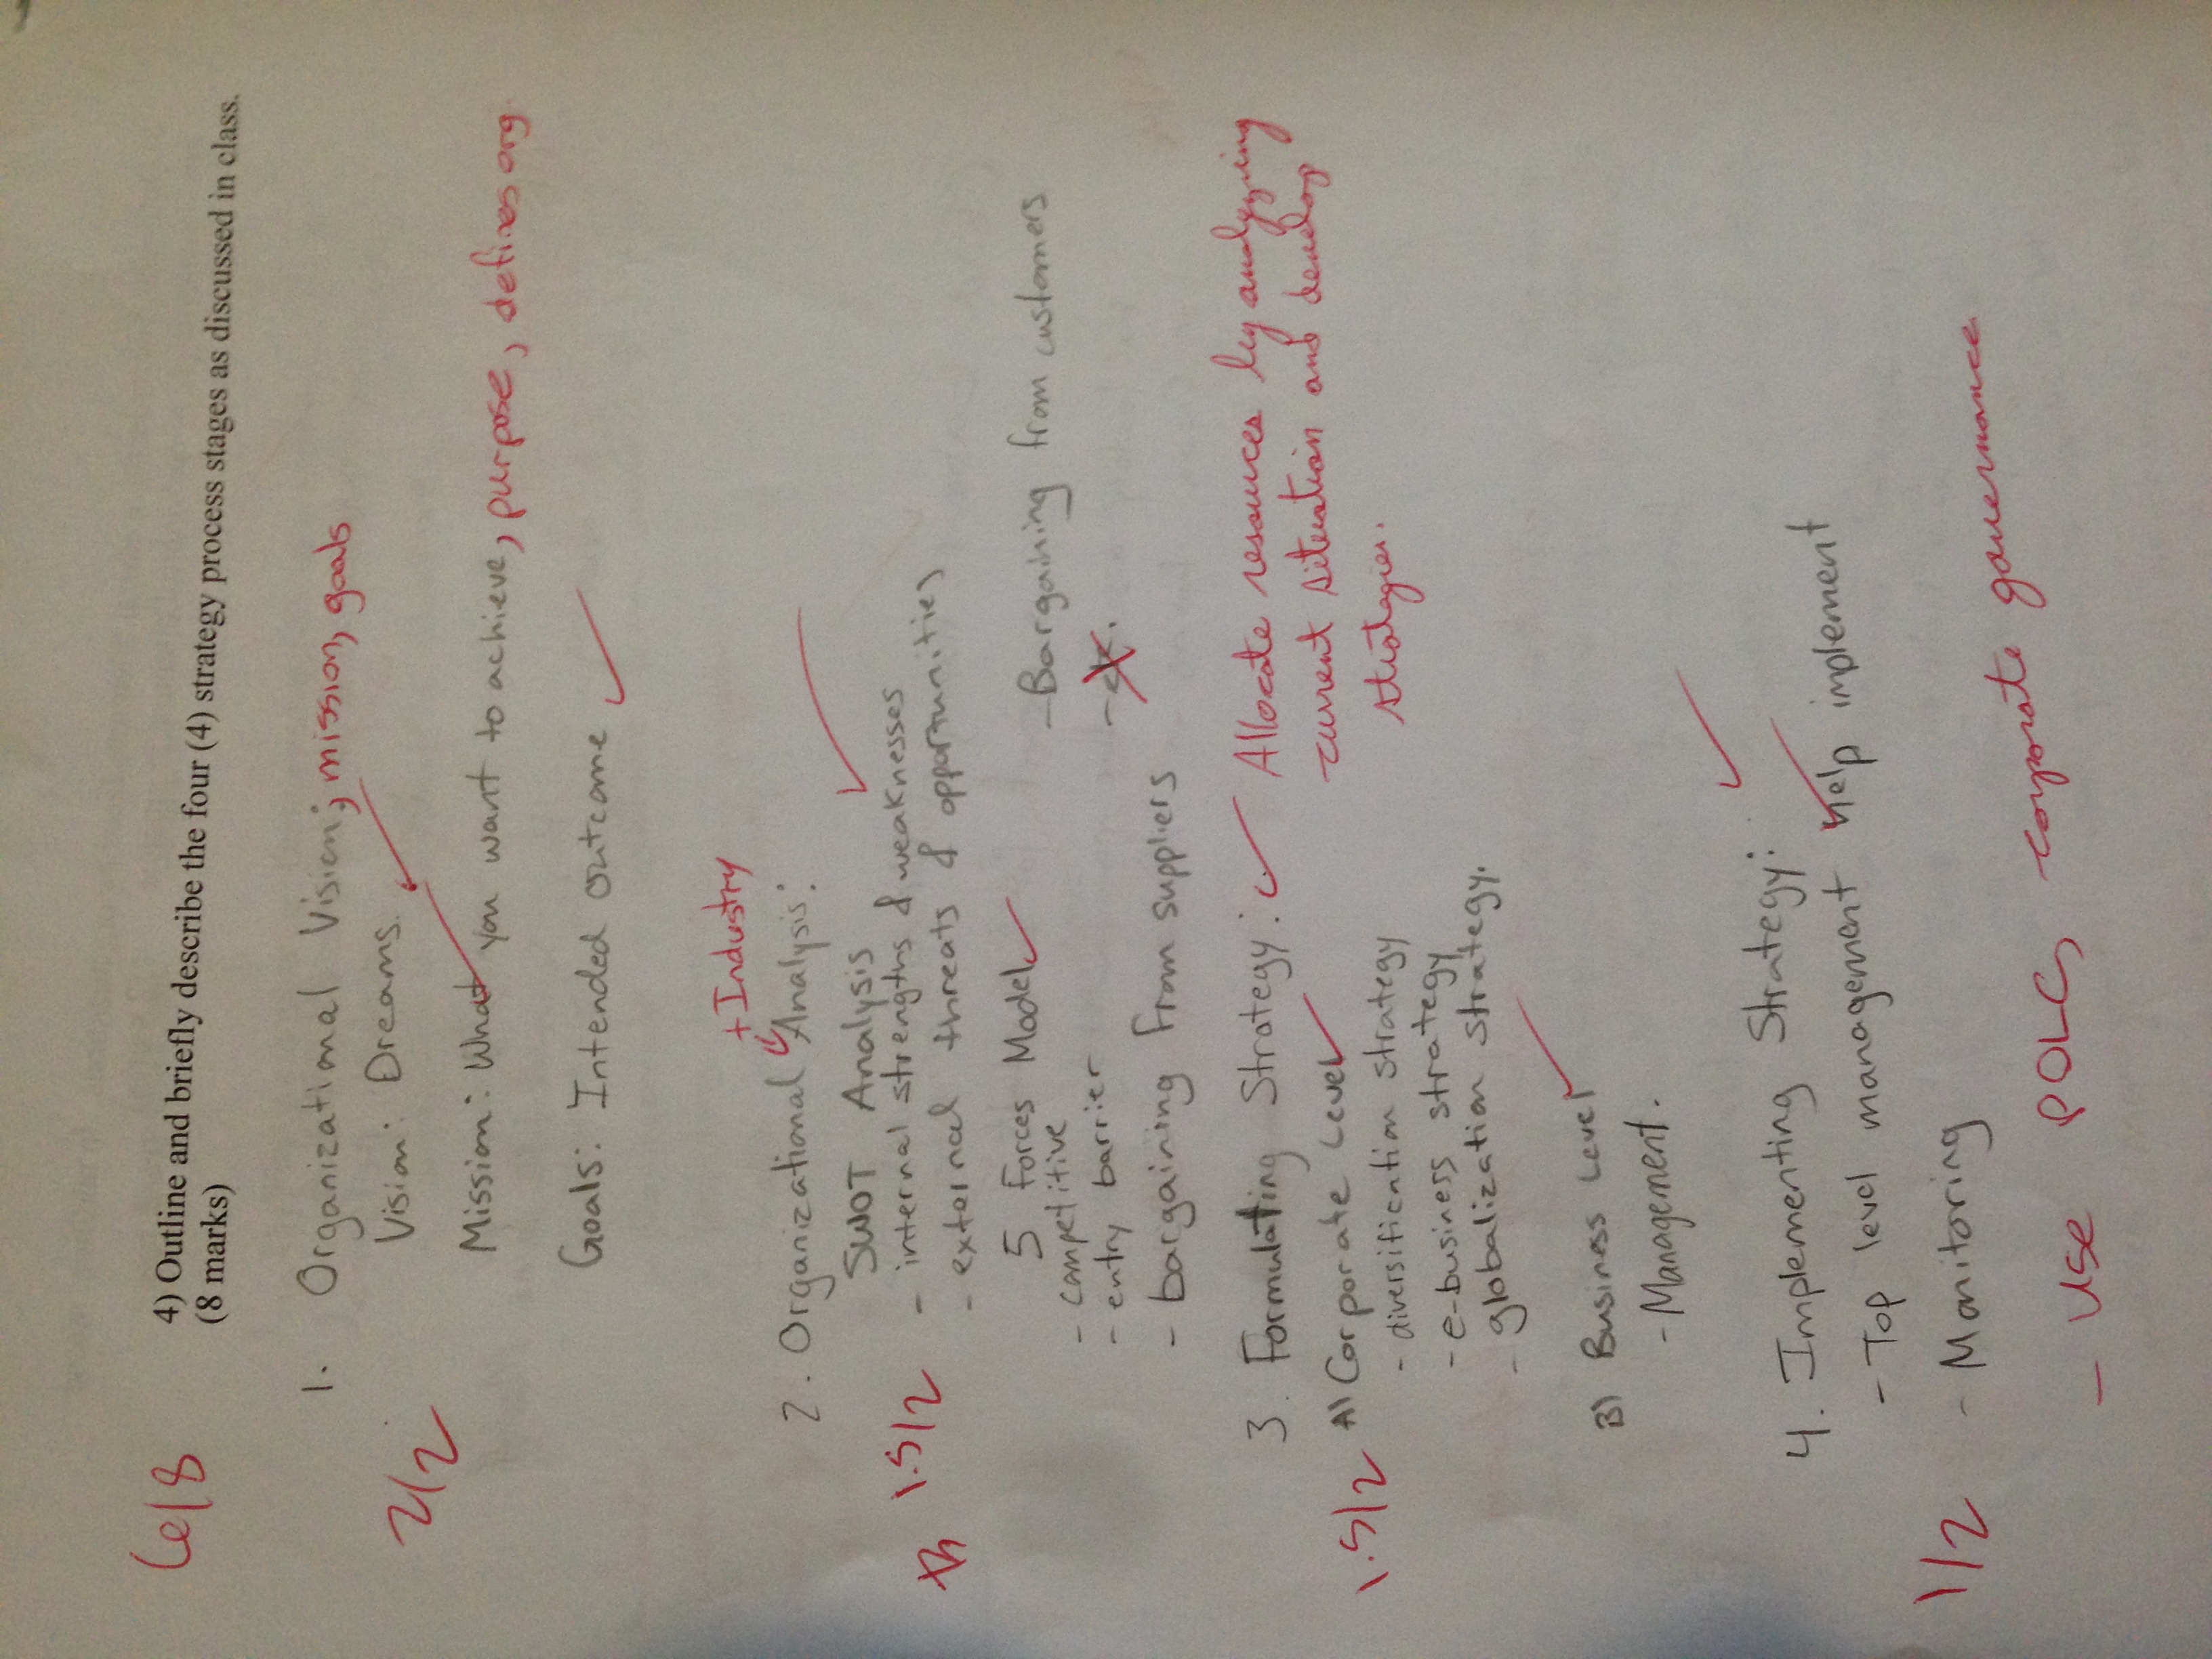 6/8
4) Outline and briefly describe the four (4) strategy process stages as discussed in class.
(8 marks)
1. Organizational Vision; , mission, goals
Vision: Dreams.
2/2
Mission: What you want to achieve, purpose, defines org.
Goals: Intended outcome
+Industry
2. Organizational Analysis:
SWOT Analysis
1.5/2
- internal strengths & weaknesses
- external threats & opportunities
5 Forces Model
- competitive
- entry barrier
- bargaining from suppliers
- Bargaining from customers
- etc.
3. Formulating Strategy:
Allocate resources by analyzing
current situation and develop
strategies.
1.5/2
A) Corporate Level
- diversification strategy
- e-business strategy
- globalization strategy.
B) Business Level
- Management.
4. Implementing Strategy:
- Top level management help implement
1/2
- Monitoring
- Use POLC, corporate governance.